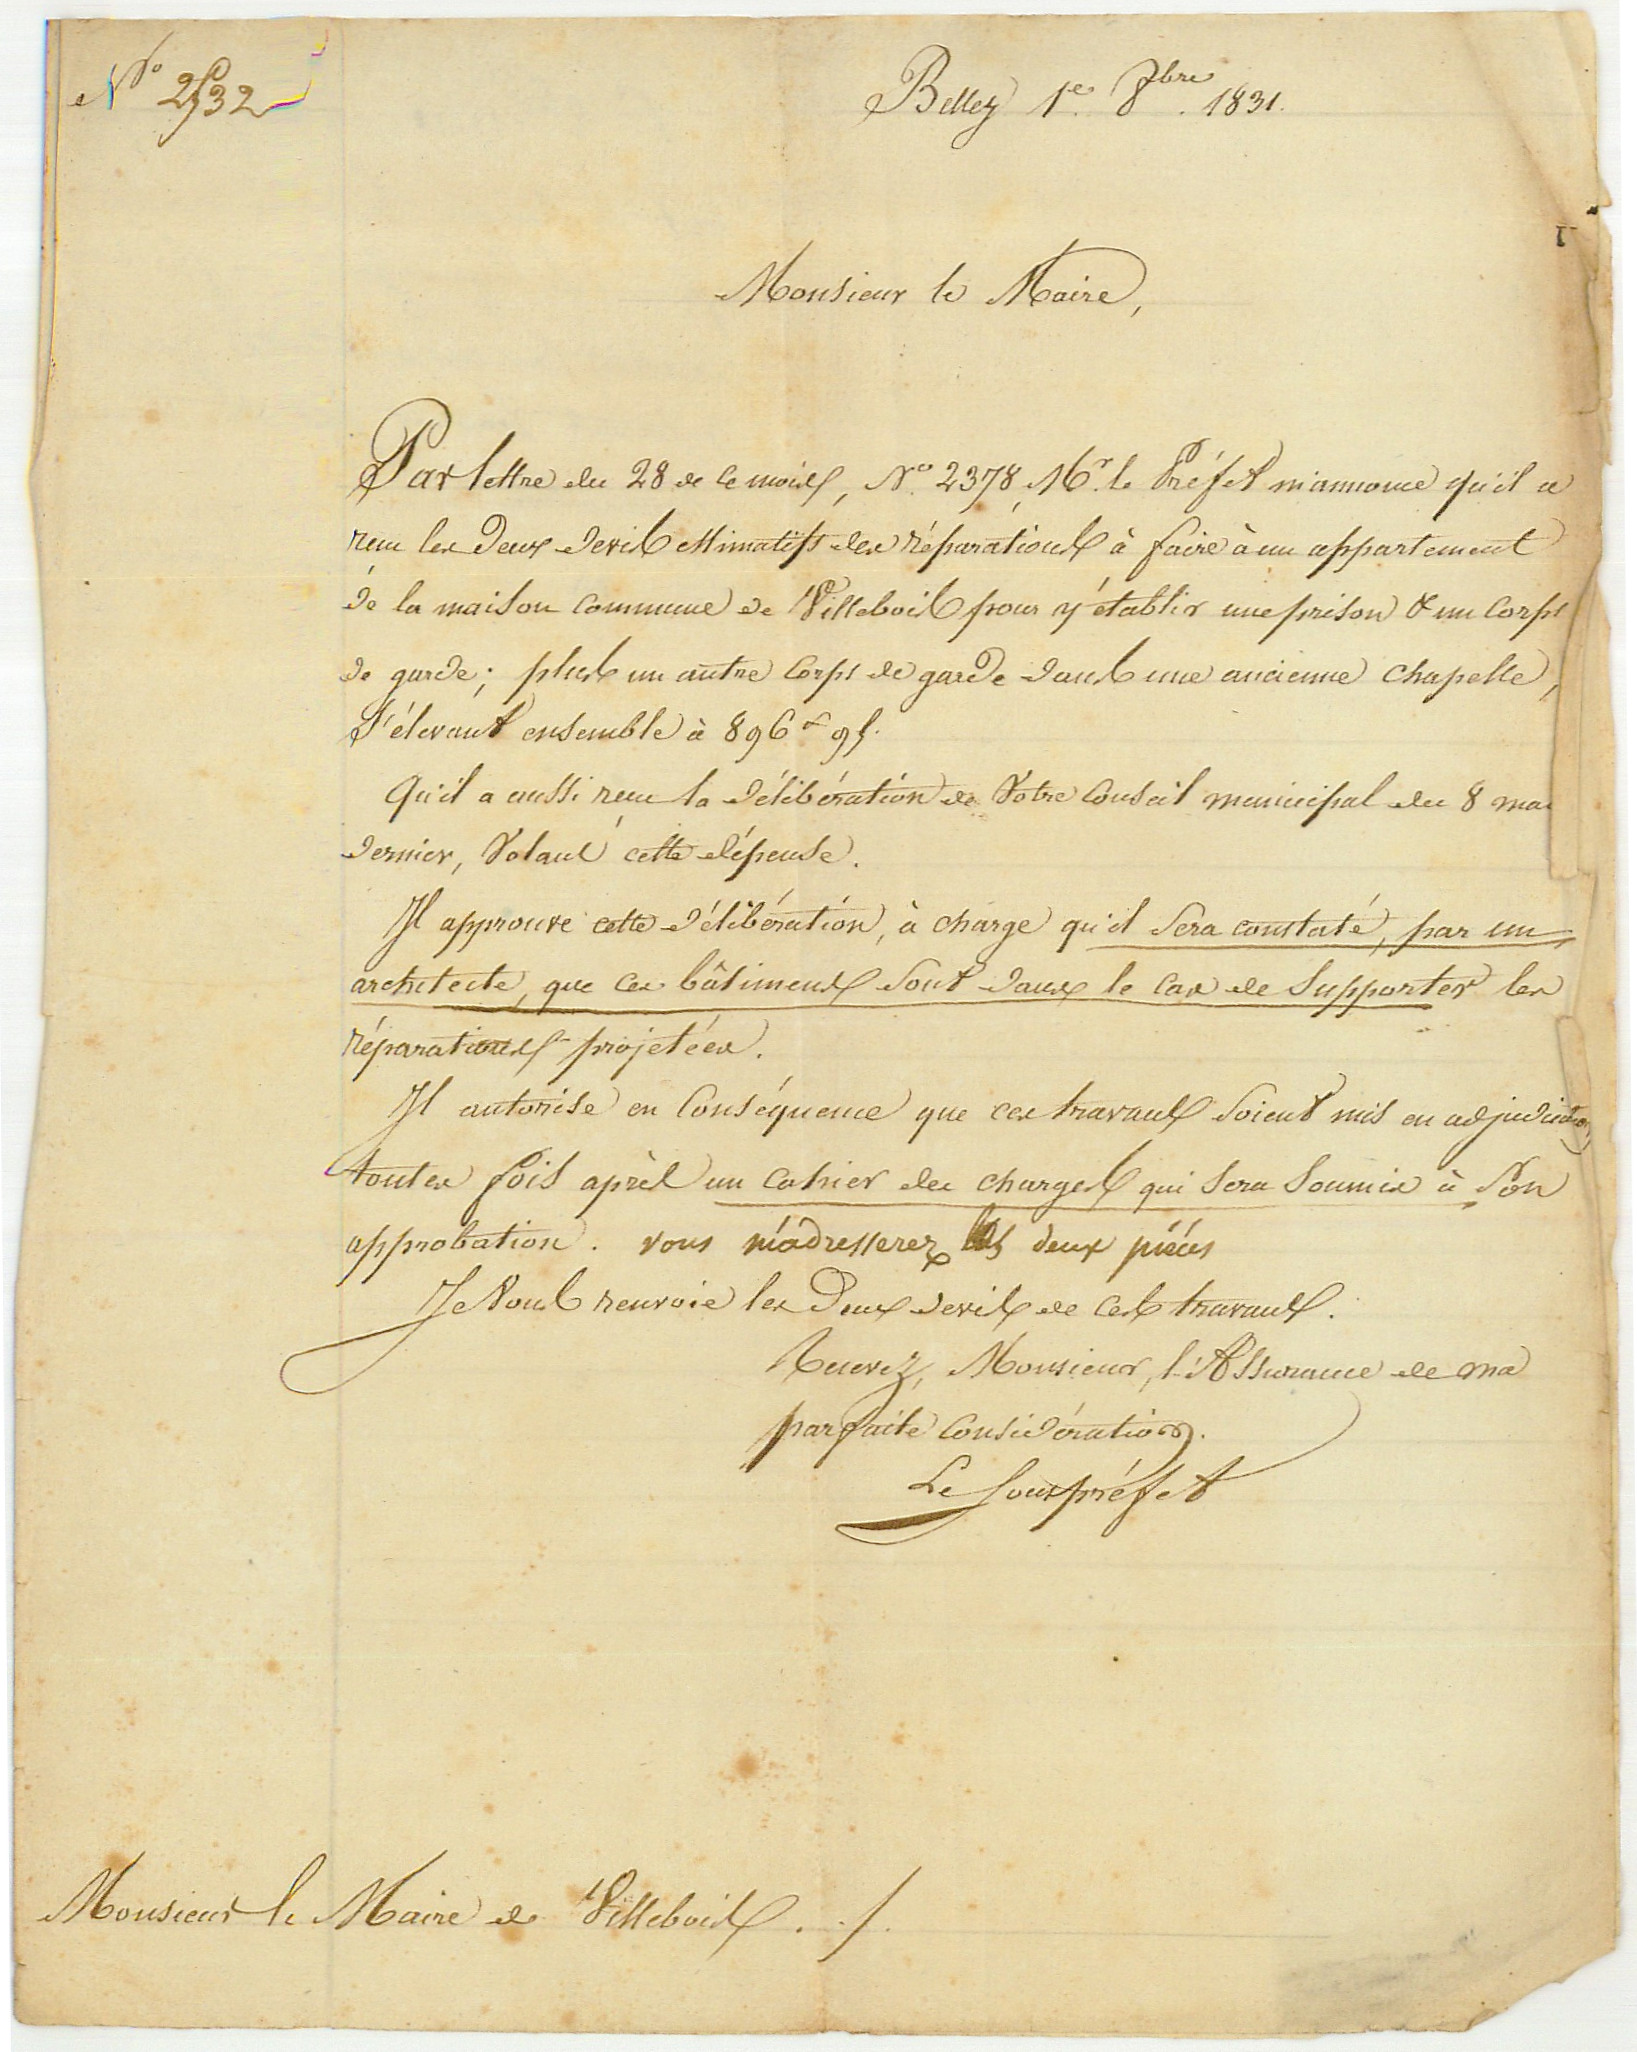 N° 2532
Belley 1e. 8bre. 1831.
Monsieur le Maire,
Par lettre du 28 de ce mois, N° 2378, Mr. le Préfet m'annonce qu'il a
reçu les deux devis estimatifs des réparations à faire à un appartement
de la maison commune de Villebois pour y établir une prison & un corps
de garde; plus un autre corps de garde dans une ancienne chapelle,
s'élevant ensemble à 896 f 95.
Qu'il a aussi reçu la délibération de votre conseil municipal du 8 mai
dernier, votant cette dépense.
Il approuve cette délibération, à charge qu'il sera constaté, par un
architecte, que ces bâtiments sont dans le cas de supporter les
réparations projetées.
Il autorise en conséquence que ces travaux soient mis en adjudication,
toutes fois après un cahier des charges qui sera soumis à son
approbation. vous m'adresserez les deux pièces
Je vous renvoie les deux devis de ces travaux.
Recevez, Monsieur, l'Assurance de ma
parfaite considération.
Le sous préfet
Monsieur le Maire de Villebois . ./.